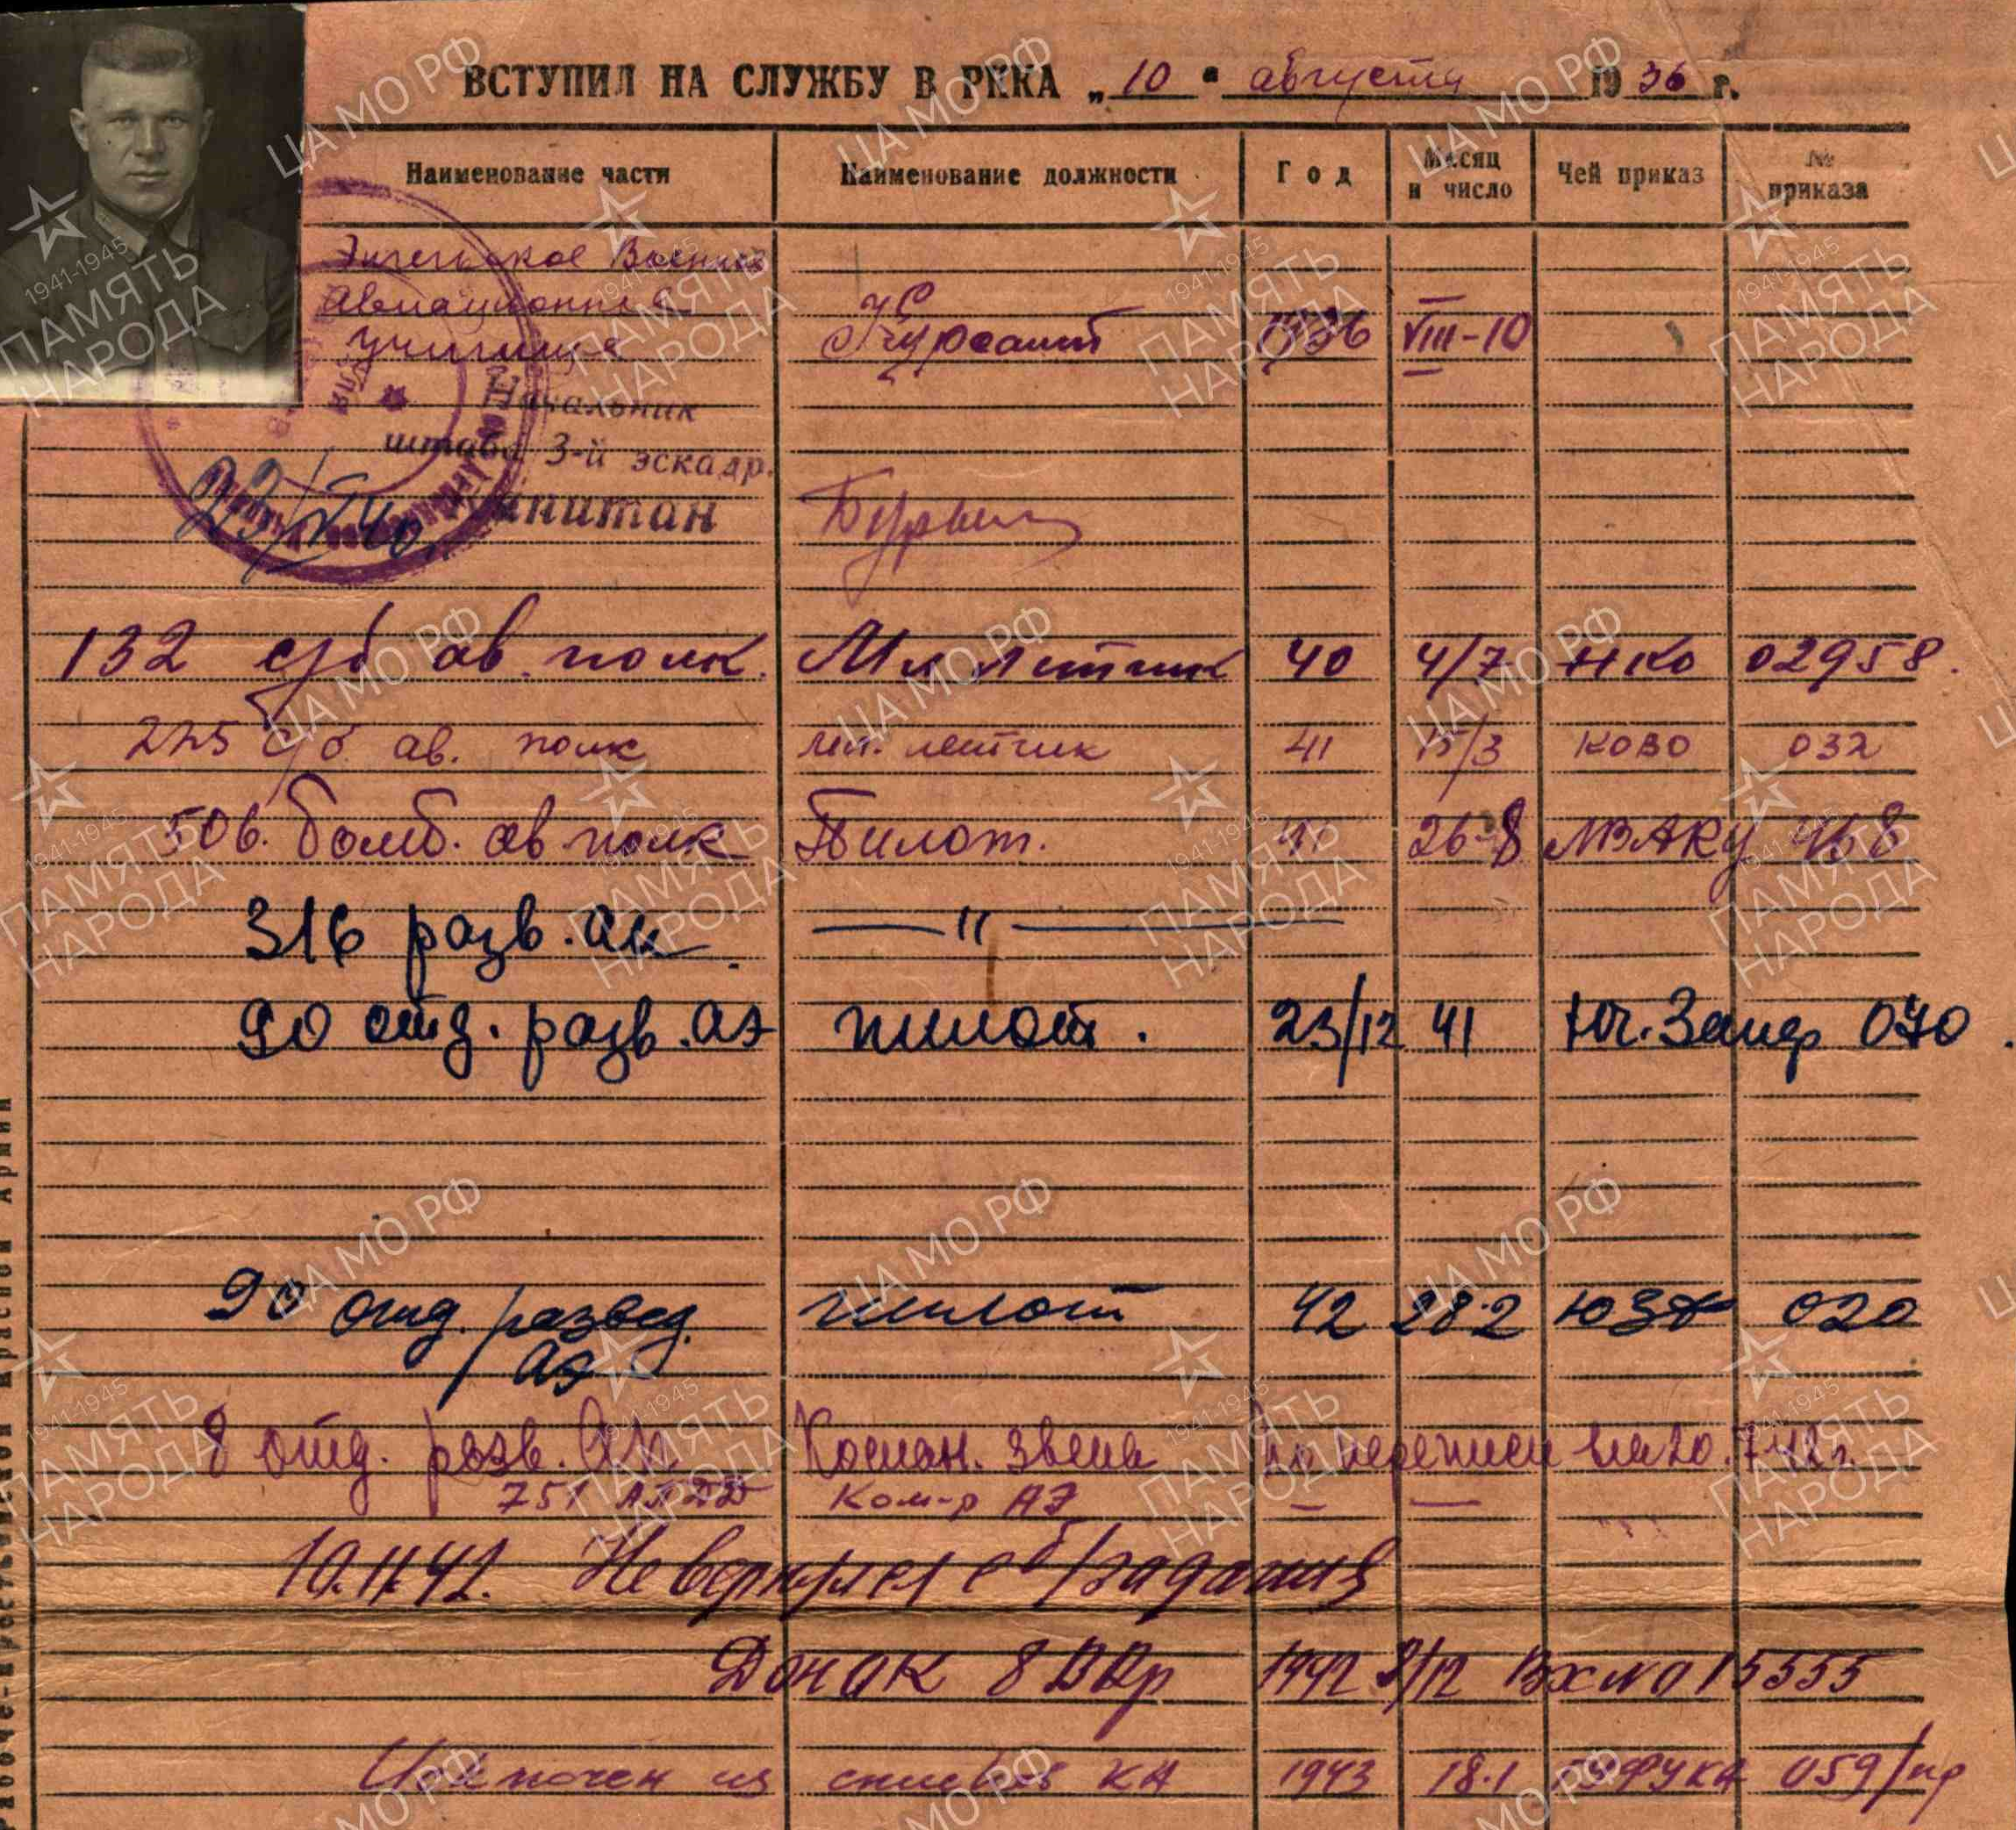 ВСТУПИЛ НА СЛУЖБУ В РККА „10" августа 1936 г.
Наименование части Наименование должности Год Месяц и число Чей приказ № приказа
Энгельское Военное
Авиационное
Училище Курсант 1936 VIII-10
Начальник
штаба 3-й эскадр.
Капитан
23/V 40
132 с/б ав. полк. Мл летчик 40 4/7 НКО 02958.
225 с/б ав. полк мл. летчик 41 15/3 КОВО 032
506. бомб. ав полк Пилот. 41 26-8 468
316 разв. ап. —"—
90 отд. разв. аэ пилот. 23/12 41 Юг. 070.
90 отд. развед. пилот 42 28.2 ЮЗФ 020
аэ
8 отд. разв. АП Коман. звена По переписи на 20.7 42 г.
751 АПДД Ком-р АЭ — —
10.11.42. Не вернулся с б/задания
8 1942 9/12 Вх № 015555
Исключен из списков КА 1943 18.1 ГУФУКА 059/пр
Красной Армии
ЦА МО РФ
1941-1945
ПАМЯТЬ
НАРОДА